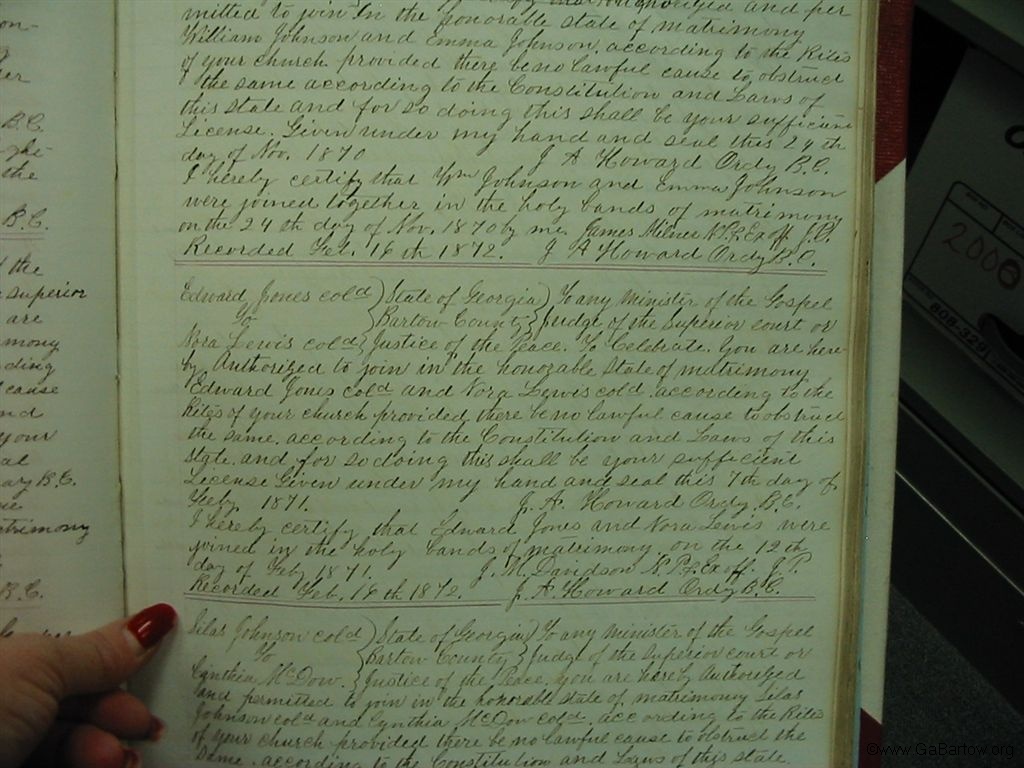 mitted to join in the honorable state of matrimony
William Johnson and Emma Johnson, according to the Rites
of your church provided there be no lawful cause to obstruct
the same according to the Constitution and Laws of
this state and for so doing this shall be your sufficient
License. Given under my hand and seal this 24th
day of Nov. 1870 J A Howard Ordy B.C.
I hereby certify that Wm Johnson and Emma Johnson
were joined together in the holy bands of matrimony
on the 24th day of Nov. 1870 by me. James Milner N.P. & Ex off. J.P.
Recorded Feb. 16th 1872. J A Howard Ordy B.C.
Edward Jones cold State of Georgia To any Minister of the Gospel
To Bartow County Judge of the Superior court or
Nora Lewis cold Justice of the Peace. To Celebrate. You are here
by Authorized to join in the honorable State of matrimony
Edward Jones cold and Nora Lewis cold. according to the
Rites of your church provided there be no lawful cause to obstruct
the same. according to the Constitution and Laws of this
State. and for so doing this shall be your sufficient
License Given under my hand and seal this 7th day of
Feby 1871. J. A. Howard Ordy B.C.
I hereby certify that Edward Jones and Nora Lewis were
joined in the holy bands of matrimony. on the 12th
day of Feby 1871. J. M. Davidson N.P. & Ex off. J.P.
Recorded Feb. 16th 1872. J. A. Howard Ordy B.C.
Silas Johnson cold State of Georgia To any Minister of the Gospel
To Bartow County Judge of the Superior court or
Cynthia McDow. Justice of the Peace, you are hereby Authorized
and permitted to join in the honorable state of matrimony Silas
Johnson cold and Cynthia McDow cold. according to the Rites
of your church provided there be no lawful cause to obstruct the
Same. according to the Constitution and Laws of this state.
B.C.
the
B.C.
the
superior
are
mony
ding
cause
nd
your
al
B.C.
trimony
B.C.
2000
808-329
©www.GaBartow.org